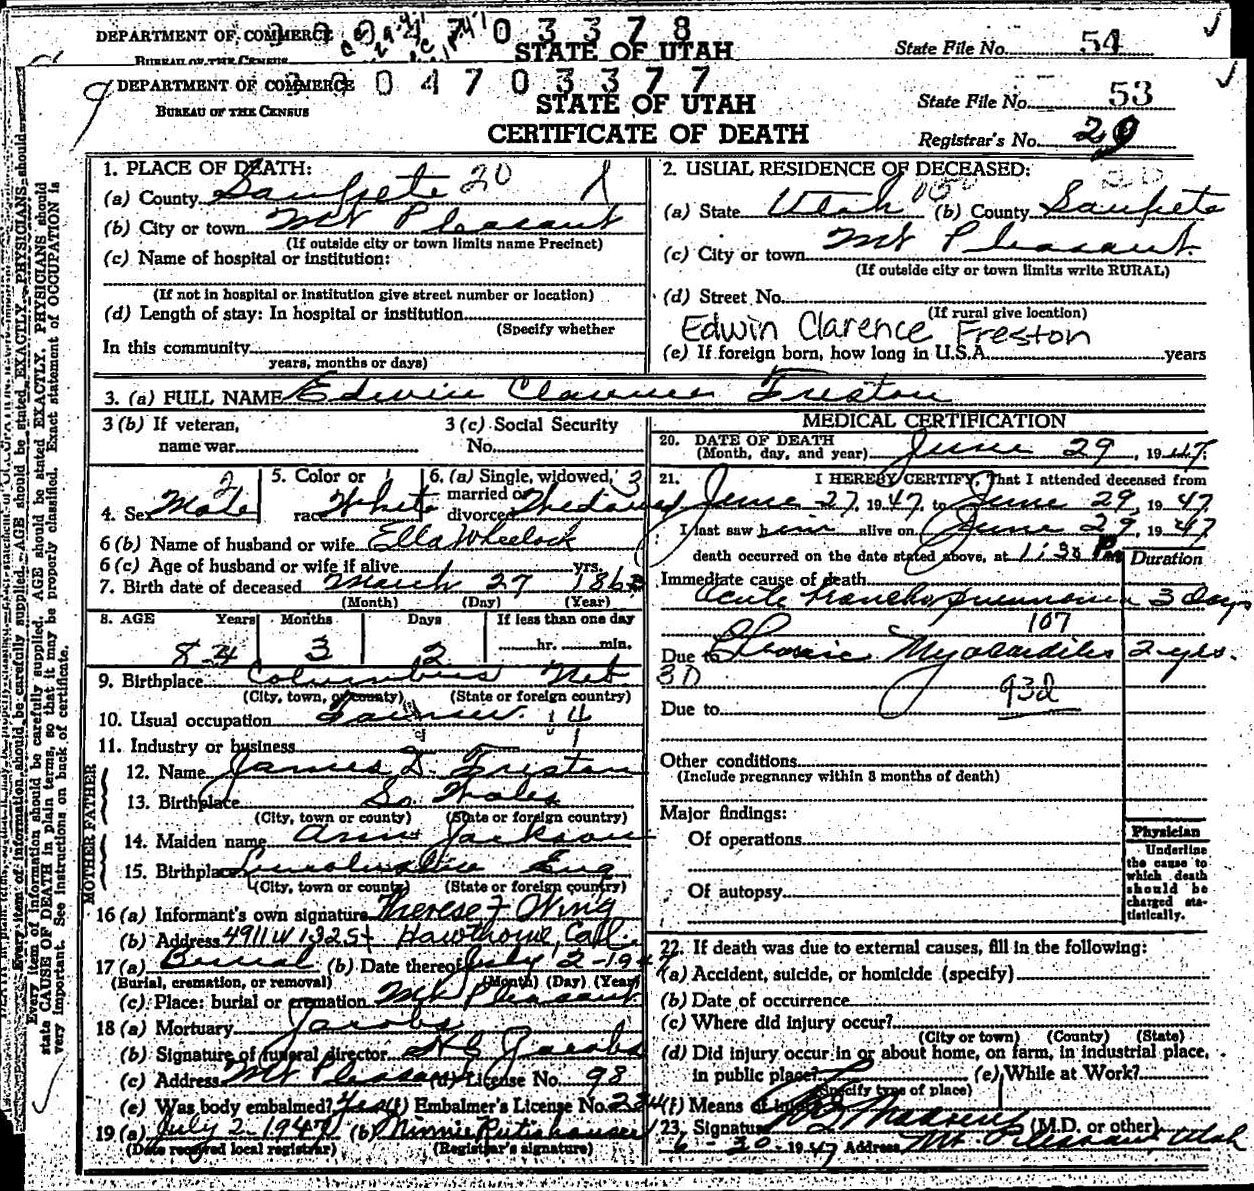 DEPARTMENT OF COMMERCE 7 0 3 3 7 8
BUREAU OF THE CENSUS STATE OF UTAH State File No. 54
DEPARTMENT OF COMMERCE 0 4 7 0 3 3 7 7
BUREAU OF THE CENSUS
STATE OF UTAH
CERTIFICATE OF DEATH
State File No. 53
Registrar's No. 29
1. PLACE OF DEATH:
(a) County Sanpete 20
(b) City or town Mt Pleasant
(If outside city or town limits name Precinct)
(c) Name of hospital or institution:
(If not in hospital or institution give street number or location)
(d) Length of stay: In hospital or institution
(Specify whether
In this community
years, months or days)
2. USUAL RESIDENCE OF DECEASED:
(a) State Utah (b) County Sanpete
(c) City or town Mt Pleasant
(If outside city or town limits write RURAL)
(d) Street No.
(If rural give location)
Edwin Clarence Freston
(e) If foreign born, how long in U.S.A. years
3. (a) FULL NAME Edwin Clarence Freston
3 (b) If veteran,
name war
3 (c) Social Security
No.
4. Sex Male
5. Color or
race White
6. (a) Single, widowed,
married or
divorced Widowed
6 (b) Name of husband or wife Ella Wheelock
6 (c) Age of husband or wife if alive yrs.
7. Birth date of deceased March 27 1863
(Month) (Day) (Year)
8. AGE Years Months Days If less than one day
84 3 2 hr. min.
9. Birthplace Columbus Neb
(City, town, or county) (State or foreign country)
10. Usual occupation Farmer
11. Industry or business
FATHER
12. Name James D. Freston
13. Birthplace So. Wales
(City, town or county) (State or foreign country)
MOTHER
14. Maiden name Ann Jackson
15. Birthplace Lincolnshire Eng
(City, town or county) (State or foreign country)
16 (a) Informant's own signature Therese F Wing
(b) Address 4911 W 132 St Hawthorne, Cal.
17 (a) Burial (b) Date thereof July 2-1947
(Burial, cremation, or removal) (Month) (Day) (Year)
(c) Place: burial or cremation Mt Pleasant
18 (a) Mortuary Jacobs
(b) Signature of funeral director Jacobs
(c) Address Mt Pleasant (d) License No. 98
(e) Was body embalmed? Yes (f) Embalmer's License No. 234
19 (a) July 2 1947 (b) Minnie Rutishauser
(Date received local registrar) (Registrar's signature)
MEDICAL CERTIFICATION
20. DATE OF DEATH
(Month, day, and year) June 29, 1947
21. I HEREBY CERTIFY, That I attended deceased from
June 27, 1947, to June 29, 1947
I last saw him alive on June 29, 1947
death occurred on the date stated above, at 11:30 Pm
Duration
Immediate cause of death
Acute Broncho pneumonia 3 days
107
Due to Chronic Myocarditis 2 yrs.
93d
Due to
Other conditions
(Include pregnancy within 3 months of death)
Major findings:
Of operations
Of autopsy
Physician
Underline
the cause to
which death
should be
charged sta-
tistically.
22. If death was due to external causes, fill in the following:
(a) Accident, suicide, or homicide (specify)
(b) Date of occurrence
(c) Where did injury occur?
(City or town) (County) (State)
(d) Did injury occur in or about home, on farm, in industrial place,
in public place? (e) While at Work?
(Specify type of place)
(f) Means of injury
23. Signature (M.D. or other)
6-30-1947 Address Mt. Pleasant, Utah
Every item of information should be carefully supplied. AGE should be stated EXACTLY. PHYSICIANS should
state CAUSE OF DEATH in plain terms, so that it may be properly classified. Exact statement of OCCUPATION is
very important. See instructions on back of certificate.